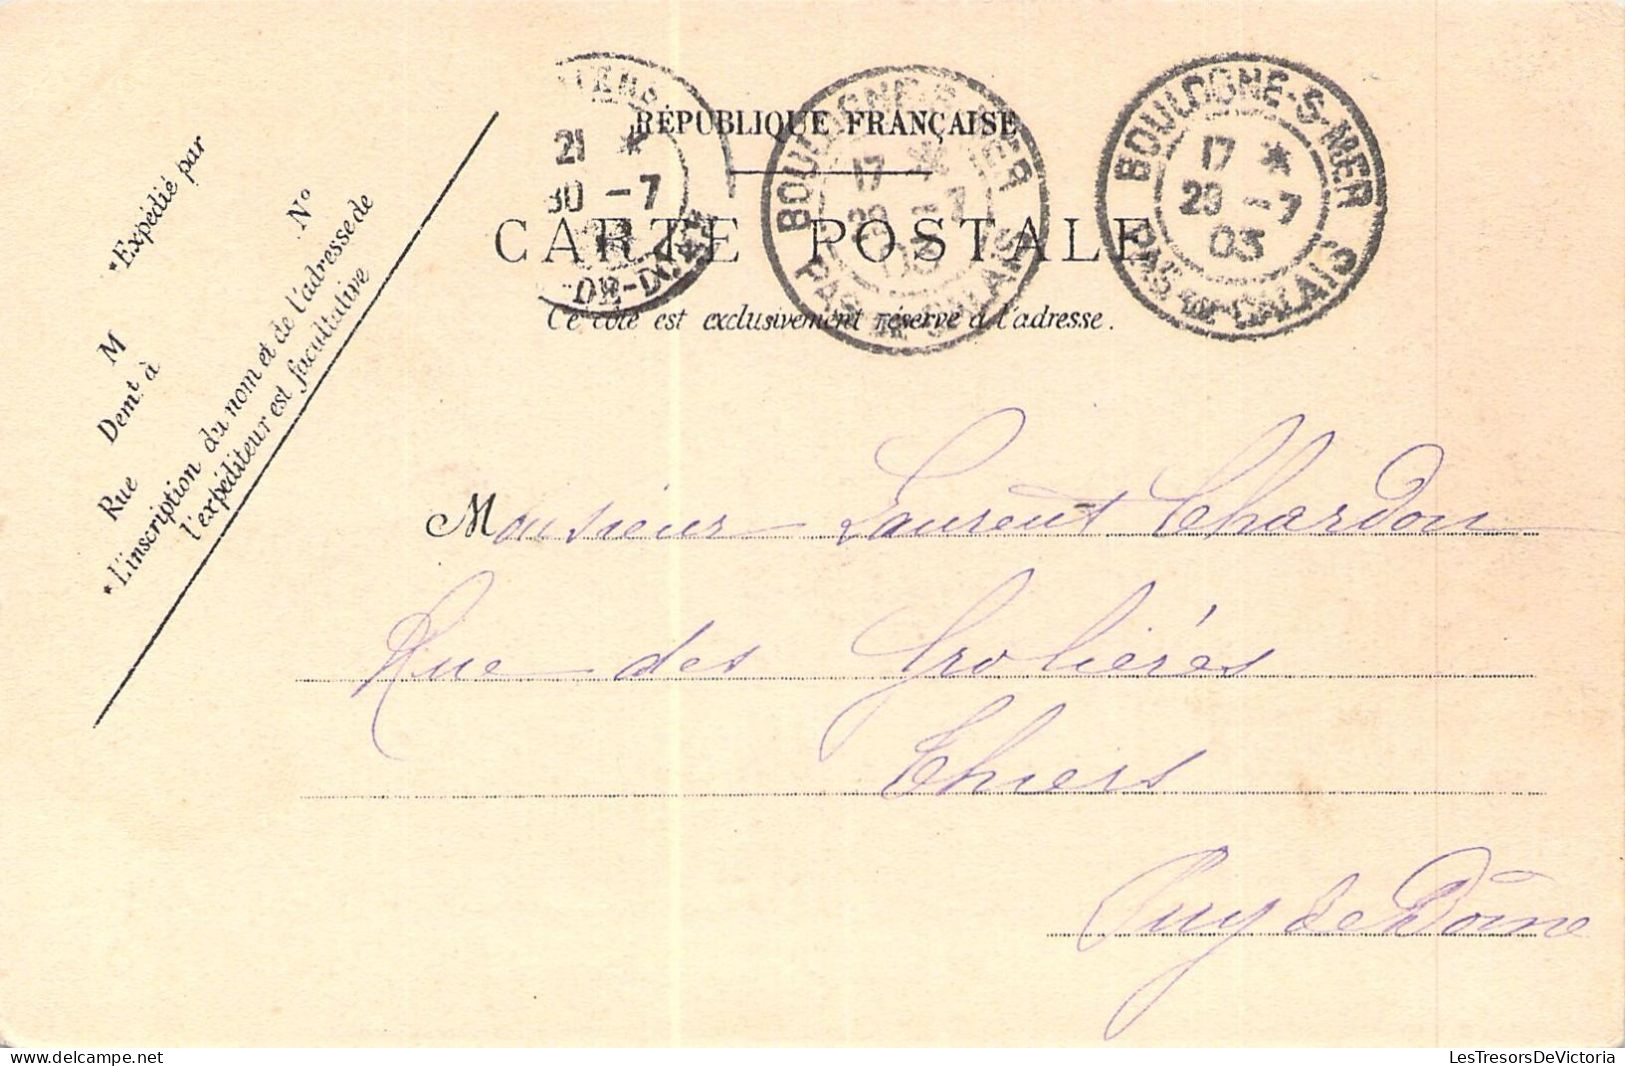 RÉPUBLIQUE FRANÇAISE
CARTE POSTALE
Ce côté est exclusivement réservé à l'adresse.
*Expédié par
N°
M
Demt. à
Rue
*L'inscription du nom et de l'adresse de
l'expéditeur est facultative
21 *
30 -7
DE-DOME
BOULOGNE-S-MER
17 *
29 -7
03
PAS DE-CALAIS
BOULOGNE-S-MER
17 *
29 -7
03
PAS DE-CALAIS
Monsieur Laurent Chardon
Rue des Grolières
Thiers
Puy de Dôme
LesTresorsDeVictoria